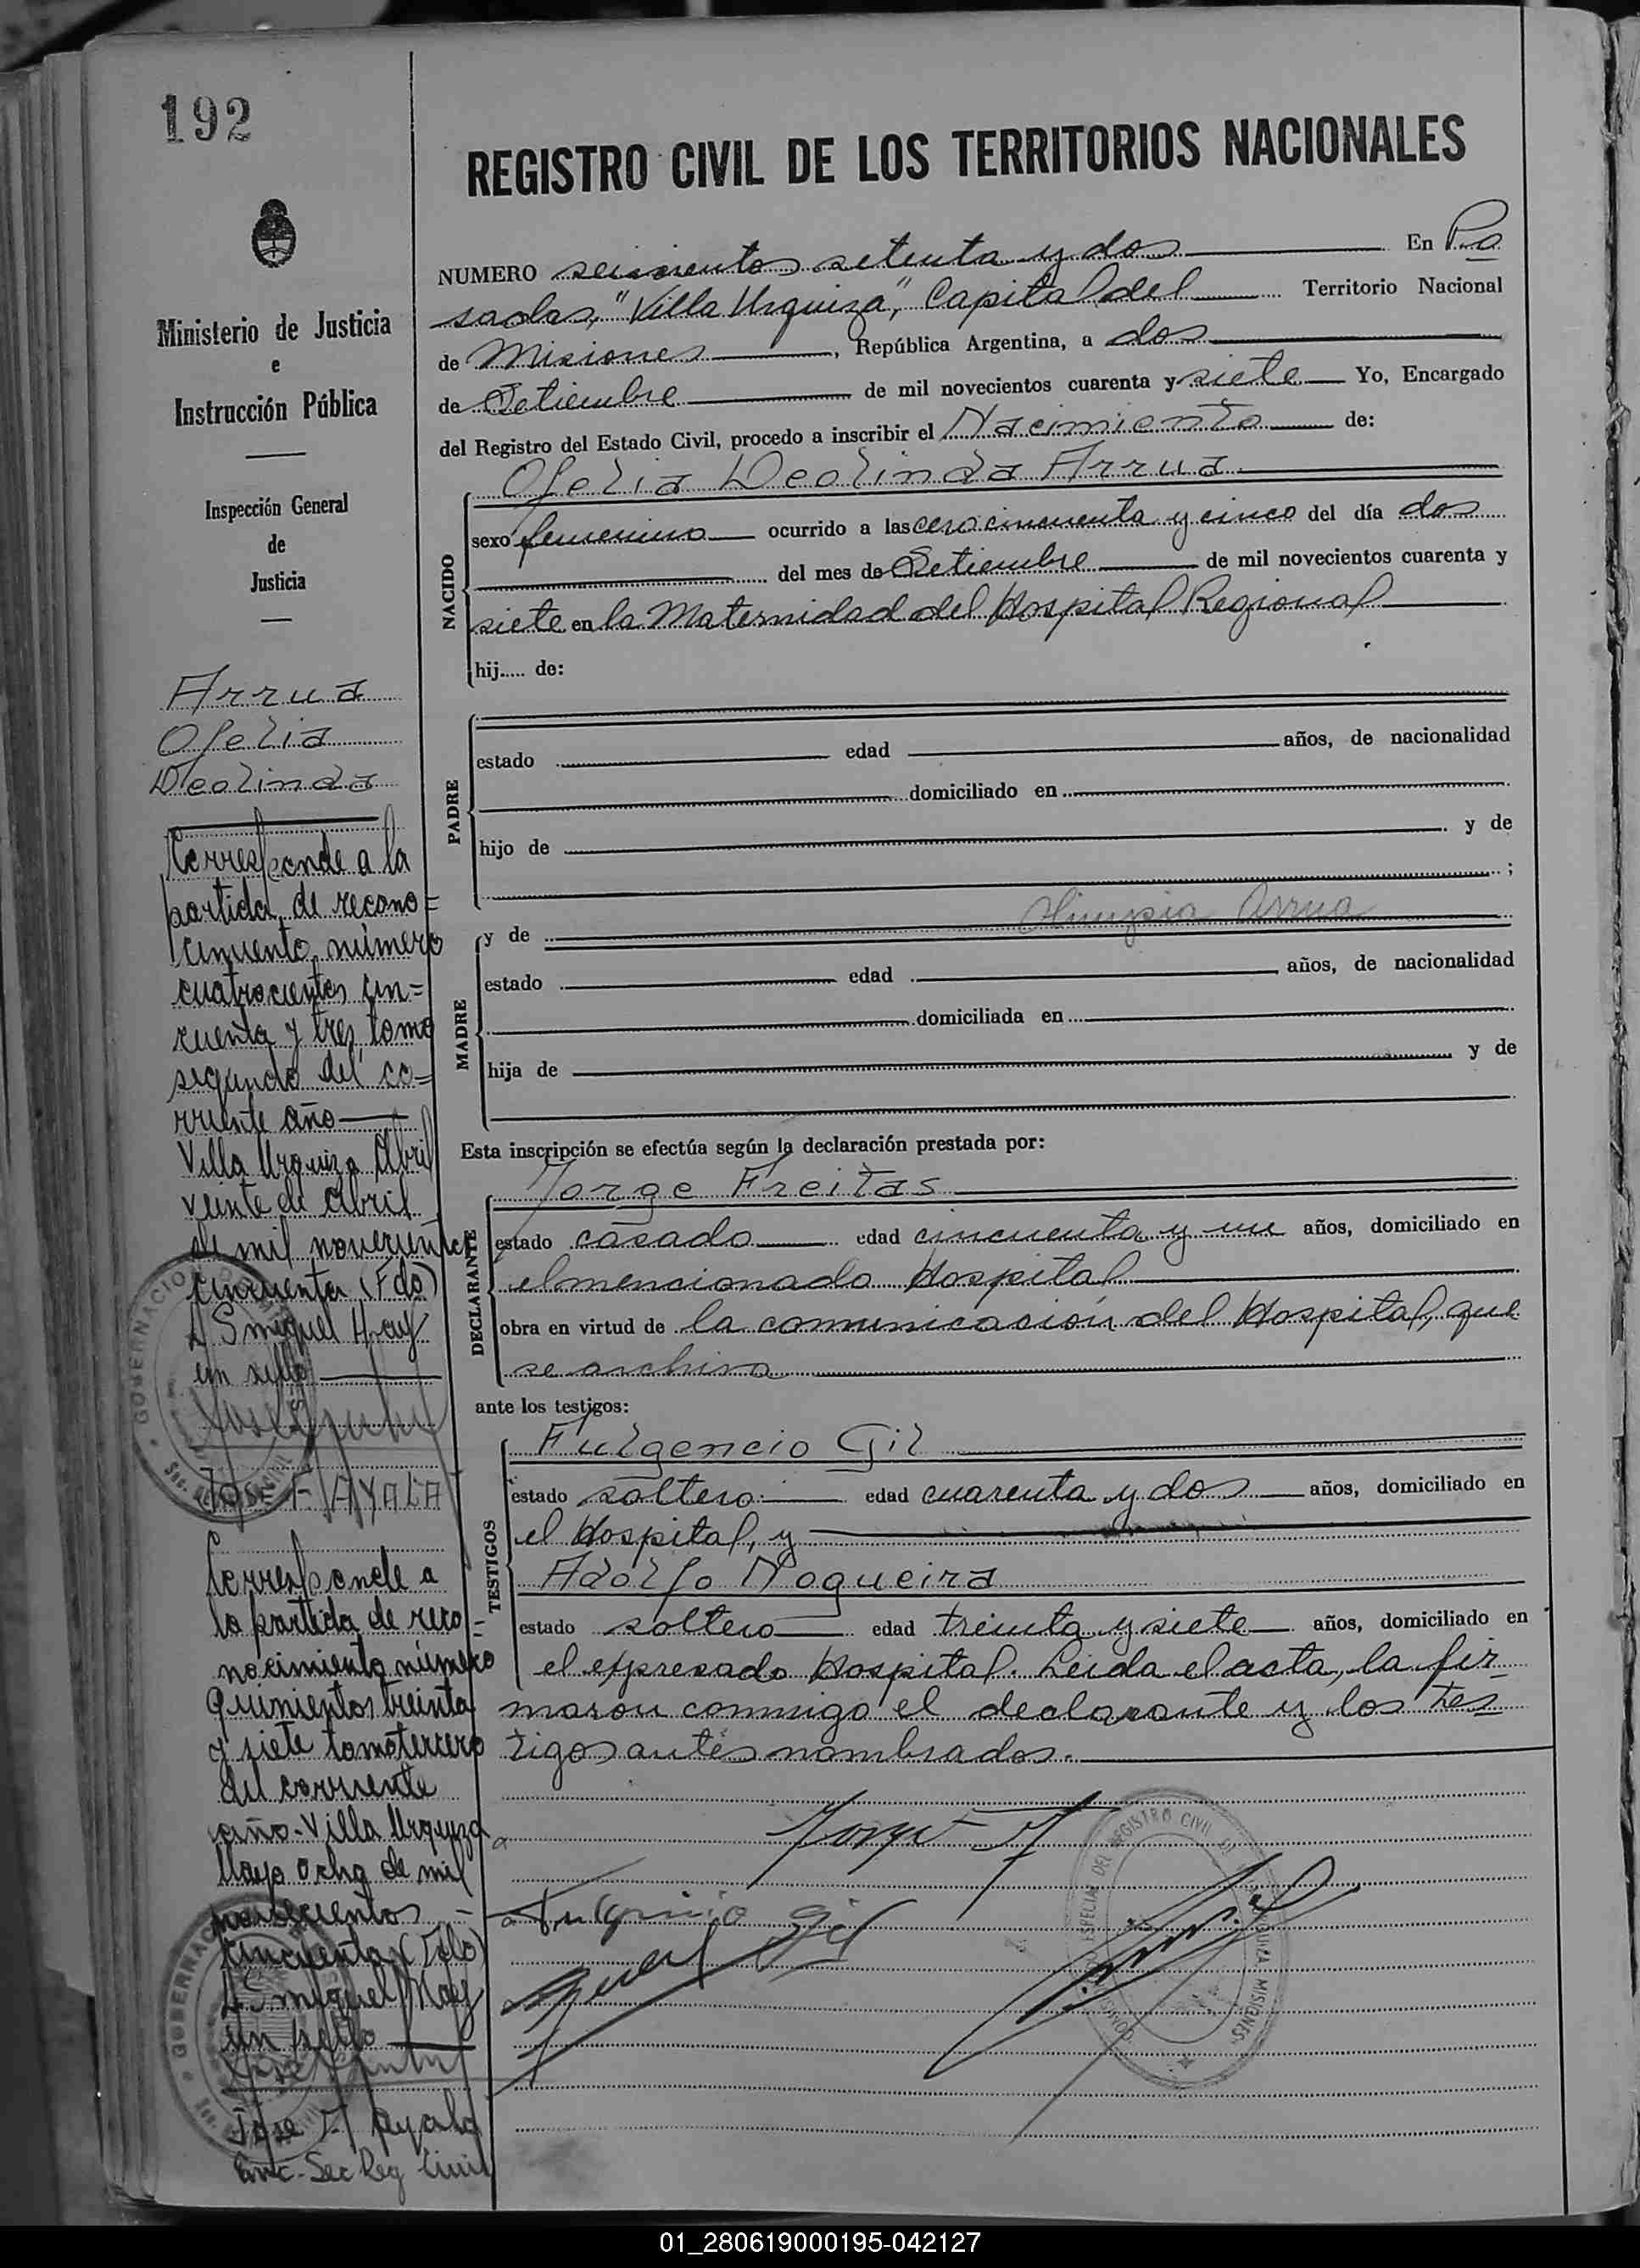 192
REGISTRO CIVIL DE LOS TERRITORIOS NACIONALES
Ministerio de Justicia
e
Instrucción Pública
Inspección General
de
Justicia
NUMERO seiscientos setenta y dos En Po
sadas, "Villa Urquiza", Capital del Territorio Nacional
de Misiones, República Argentina, a dos
de Setiembre de mil novecientos cuarenta y siete Yo, Encargado
del Registro del Estado Civil, procedo a inscribir el Nacimiento de:
Ofelia Deolinda Arrua
NACIDO
sexo femenino ocurrido a las cero cincuenta y cinco del día dos
del mes de Setiembre de mil novecientos cuarenta y
siete en la Maternidad del Hospital Regional
hij..... de:
PADRE
estado edad años, de nacionalidad
domiciliado en
hijo de y de
;
MADRE
y de Olimpia Arrua
estado edad años, de nacionalidad
domiciliada en
hija de y de
Esta inscripción se efectúa según la declaración prestada por:
DECLARANTE
Jorge Freitas
estado casado edad cincuenta y un años, domiciliado en
el mencionado Hospital
obra en virtud de la comunicación del Hospital, que
se archiva
ante los testigos:
TESTIGOS
Fulgencio Gil
estado soltero edad cuarenta y dos años, domiciliado en
el Hospital, y
Adolfo Nogueira
estado soltero edad treinta y siete años, domiciliado en
el expresado Hospital. Leida el acta, la fir
maron conmigo el declarante y los tes
tigos antes nombrados.
Jorge F
Fulgencio Gil
Arrua
Ofelia
Deolinda
Corresponde a la
partida de recono=
cimiento número
cuatrocientos cin=
cuenta y tres, tomo
segundo del co=
rriente año
Villa Urquiza Abril
veinte de Abril
de mil novecientos
cincuenta (Fdo)
un sello
JOSE F AYALA
Corresponde a
la partida de reco=
nocimiento número
quinientos treinta
y siete tomo tercero
del corriente
año - Villa Urquiza
Mayo ocho de mil
novecientos
cincuenta (Fdo)
un sello
Jose F Ayala
Enc. Sec Reg Civil
01_280619000195-042127